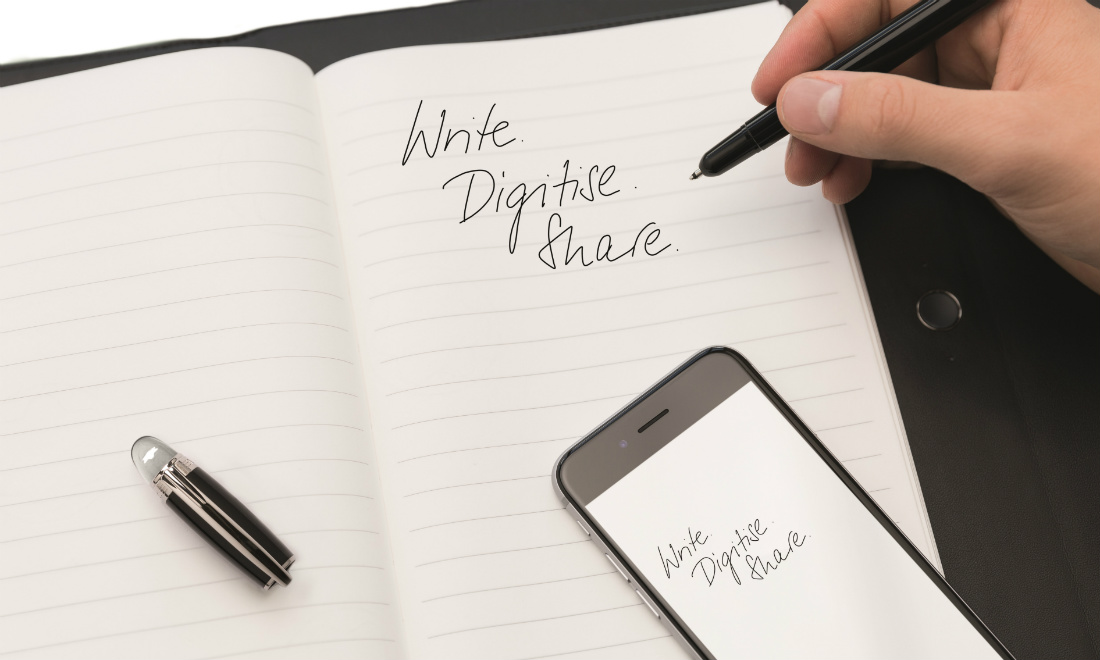 Write.
Digitise.
Share.
Write.
Digitise.
Share.